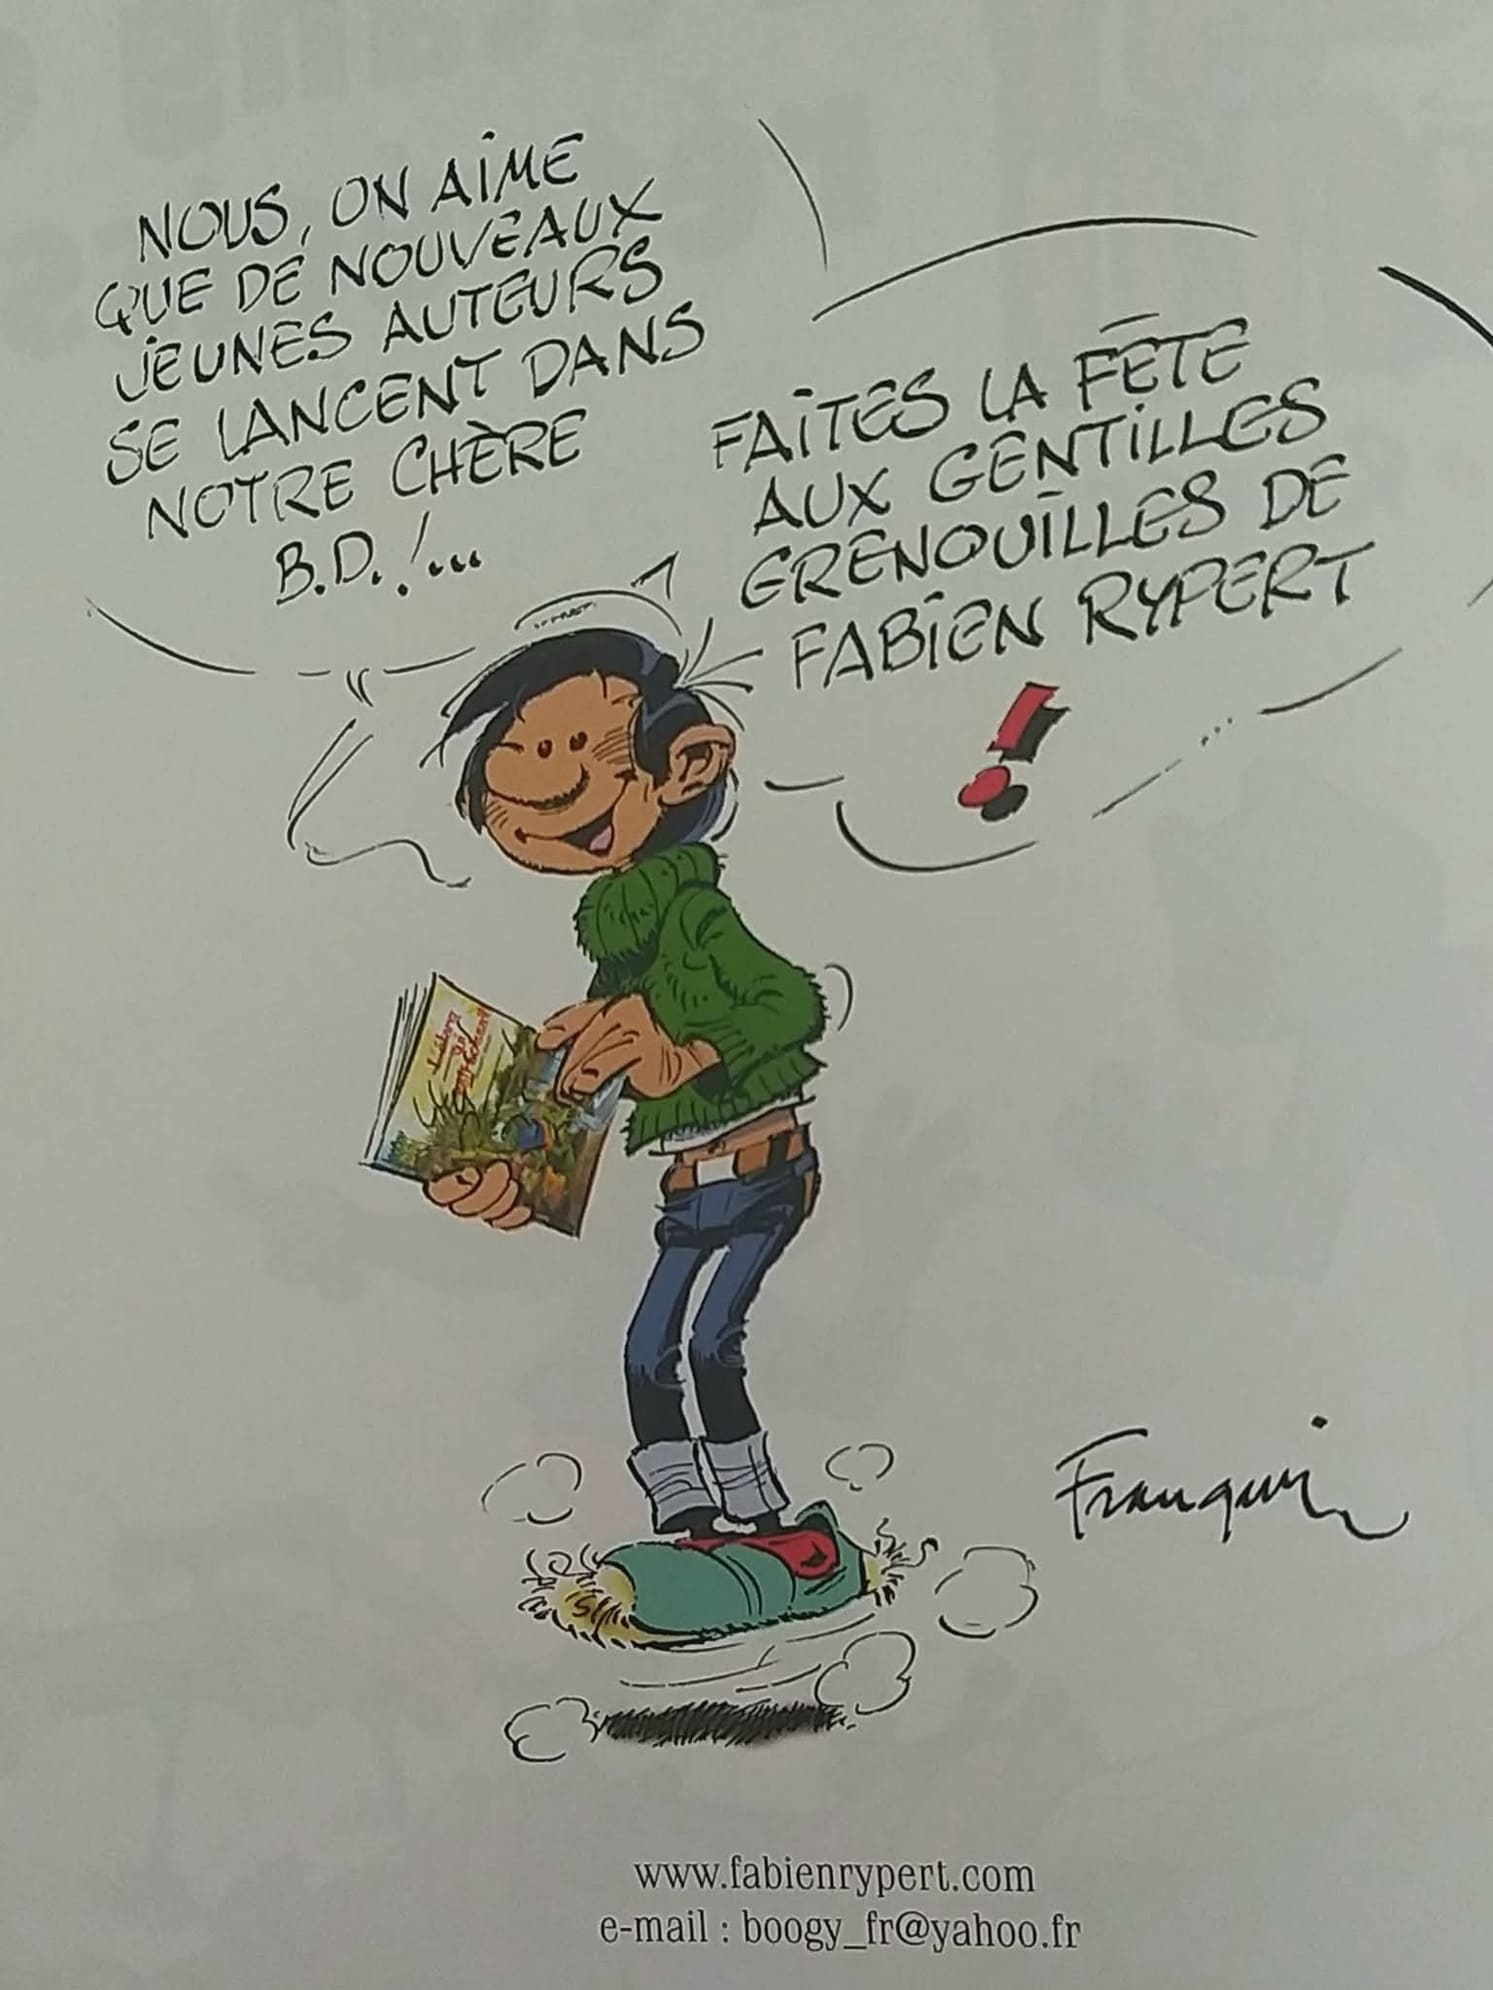 NOUS, ON AIME
QUE DE NOUVEAUX
JEUNES AUTEURS
SE LANCENT DANS
NOTRE CHÈRE
B.D.!...
FAITES LA FÊTE
AUX GENTILLES
GRENOUILLES DE
FABIEN RYPERT
!
Franquin
www.fabienrypert.com
e-mail : boogy_fr@yahoo.fr